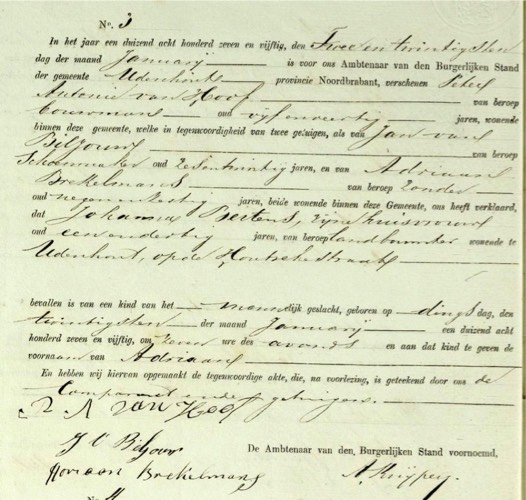 No. 3
In het jaar een duizend acht honderd zeven en vijftig, den Twee en twintigsten
dag der maand Januarij is voor ons Ambtenaar van den Burgerlijken Stand
der gemeente Udenhout provincie Noordbrabant, verschenen Peter
Antonie van Hoof van beroep
bouwman oud vijfenveertig jaren, wonende
binnen deze gemeente, welke in tegenwoordigheid van twee getuigen, als van Jan van
Biljouw van beroep
Schoenmaker oud jaren, en van Adriaan
Brekelmans van beroep Zonder
oud jaren, beide wonende binnen deze Gemeente, ons heeft verklaard,
dat Johanna Bertens, zijne huisvrouw
oud eenendertig jaren, van beroep landbouwster wonende te
Udenhout, op de straat
bevallen is van een kind van het mannelijk geslacht, geboren op dings dag, den
twintigsten der maand Januarij een duizend acht
honderd zeven en vijftig, om zeven ure des avonds en aan dat kind te geven de
voornaam van Adriaan
En hebben wij hiervan opgemaakt de tegenwoordige akte, die, na voorlezing, is geteekend door ons de
Comparant ende getuigen.
P A van Hoof
J V Biljouw
Adriaan Brekelmans
De Ambtenaar van den Burgerlijken Stand voornoemd,
A. Kuijpers